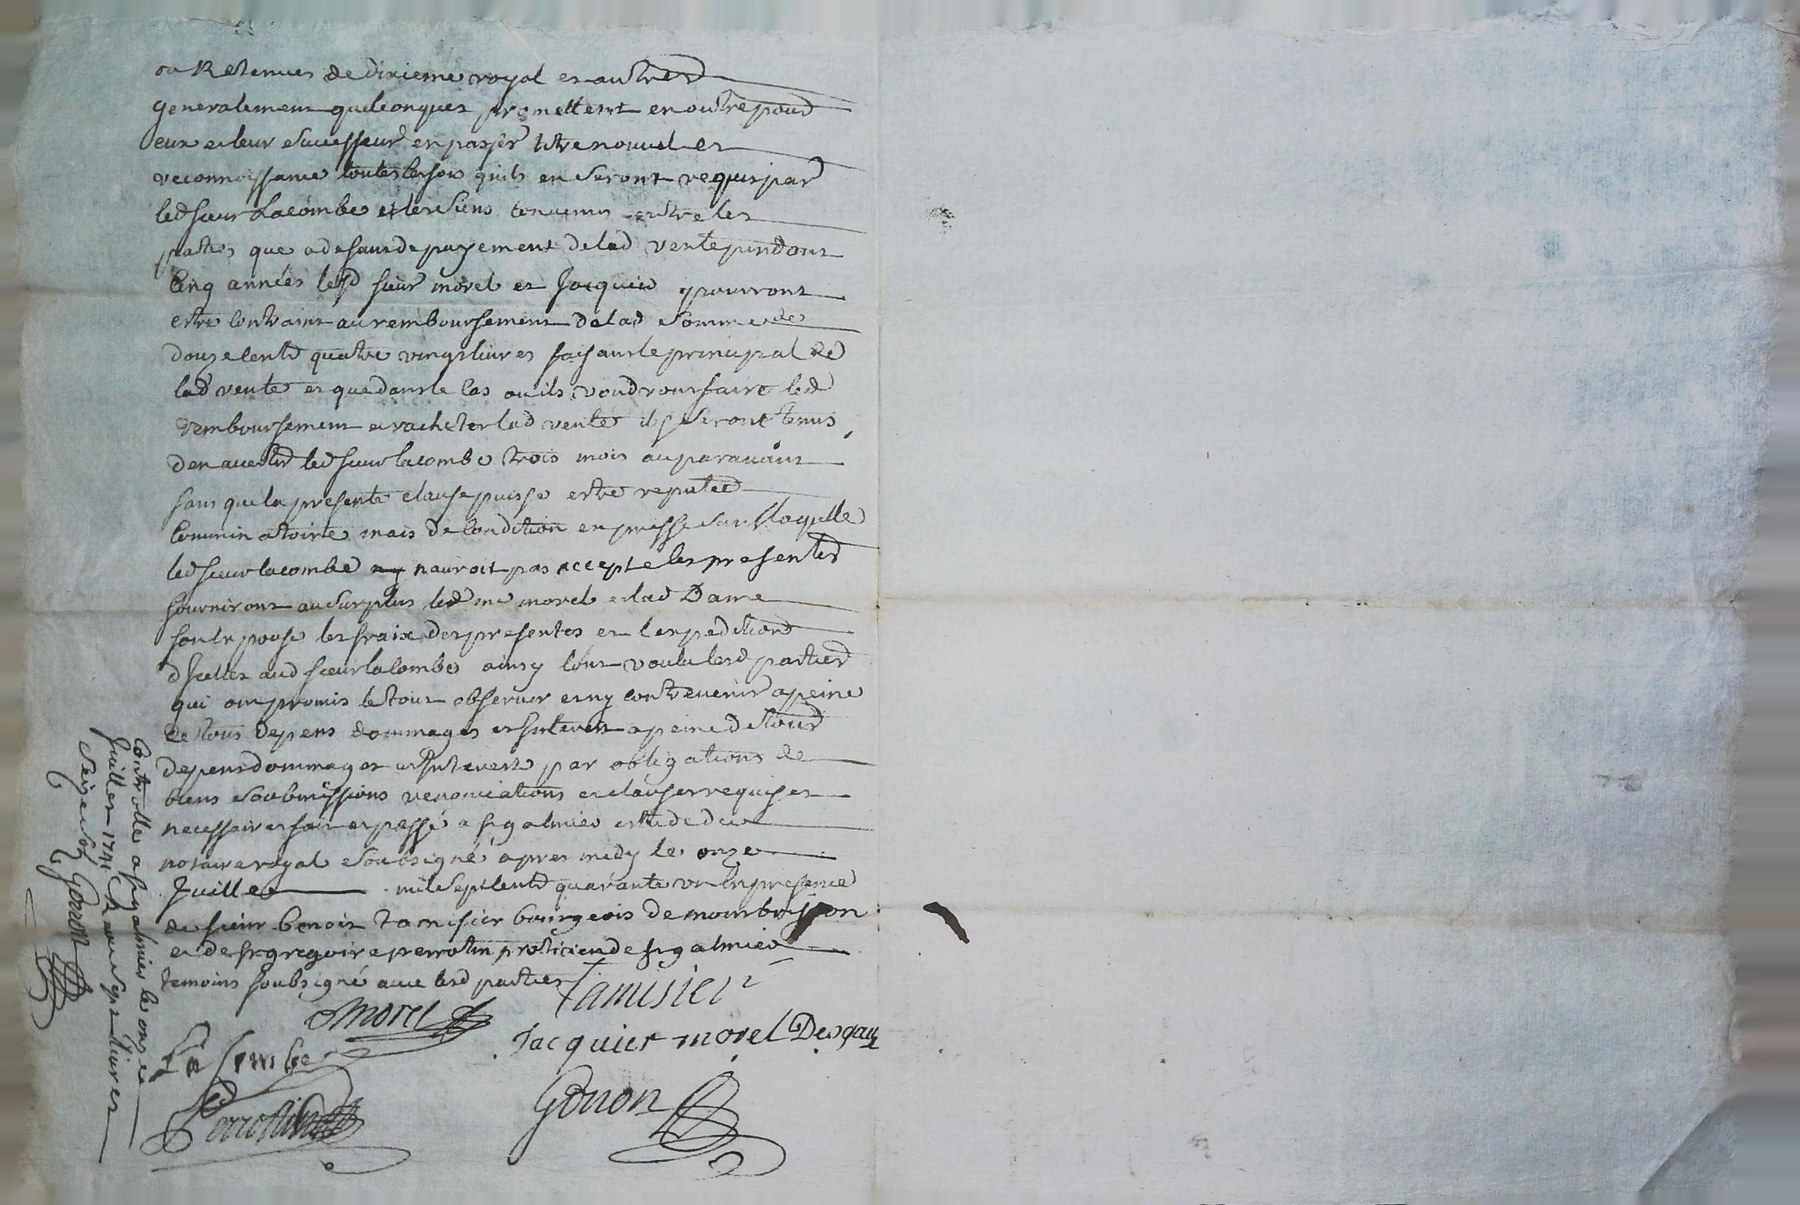 ou Retenues de dixieme royal et autres
generalement quelconques promettent en outre pour
eux et leur successeurs en passer titre nouvel et
reconnoissance toutes les fois quils en seront requis par
led sieur Lacombe et les siens convenus entre les
parties que a defaut de payement de lad rente pendant
cinq années lesd sieur morel et Jacquier pourront
estre contraint au remboursement de lad somme de
douze cents quatre vingts livres faisant le principal de
lad rente et que dans le cas ou ils voudront faire led
remboursement et racheter lad rente ils seront tenus
den avertir led sieur lacombe trois mois auparavant
sans que la presente clause puisse estre reputée
comminatoire mais de condition expresse sans laquelle
led sieur lacombe nauroit pas accepte les presentes
fourniront au surplus led me morel et lad Dame
son epouse les fraix des presentes et lexpedition
dicelles aud sieur lacombe ainsy lont voulu lesd parties
qui ont promis le tout observer et ny contrevenir a peine
de tous depens dommages et interets a peine de tous
depens dommages et interets par obligations de
biens soubmissions renonciations et clauses requises
necessaires fait et passé a st galmier estude du
notaire royal soubsigné apres midy le onze
Juillet mil sept cents quarante un en presence
de sieur benoit tamisier bourgeois de montbrison
et de sr gregoire perrotin praticien de st galmier
temoins soubsigné avec lesd parties
Tamisier
morel
Jacquier morel Desgau
La Combe
Gonon
Perrotin
Controlle a st galmier le onze
Juillet 1741 Recu sept livres
Seize sols
Gonon